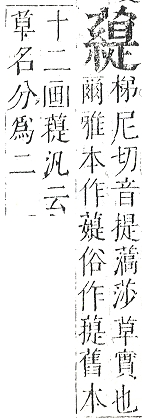 梯尼切音提薃莎草實也
爾雅本作俗作舊本
十二画汎云
草名分爲二